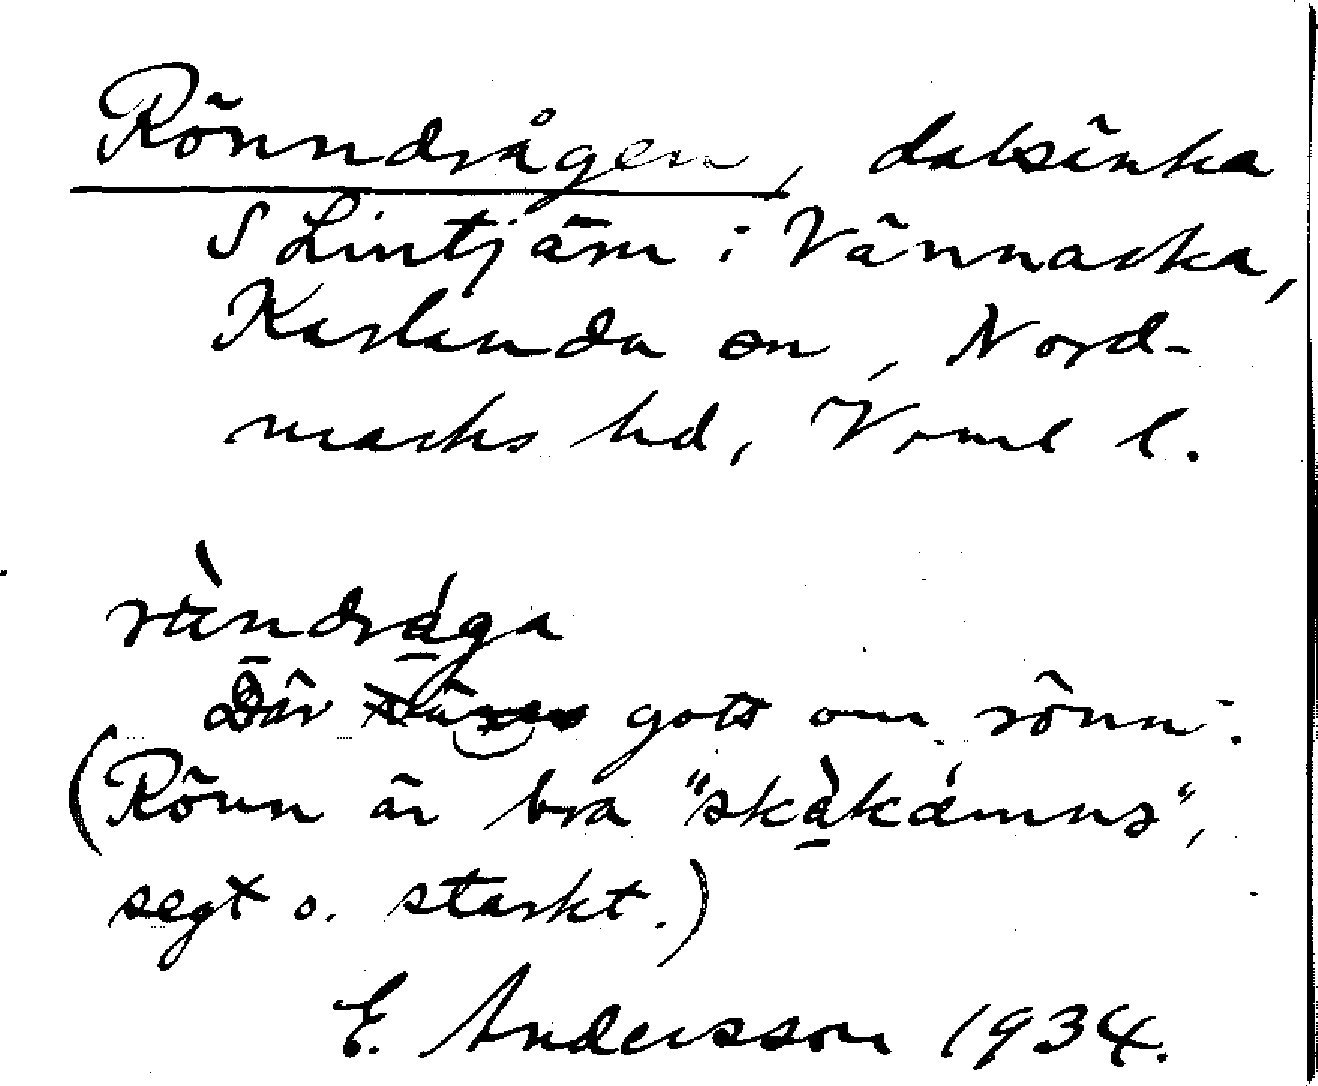 Rönndrågen, dalsänka
S Lintjärn i Vännacka,
Karlanda sn, Nord-
marks hd, Vrml l.
rändråga
Där gott om rönn.
(Rönn är bra "skàkämns",
segt o. starkt.)
E. Andersson 1934.